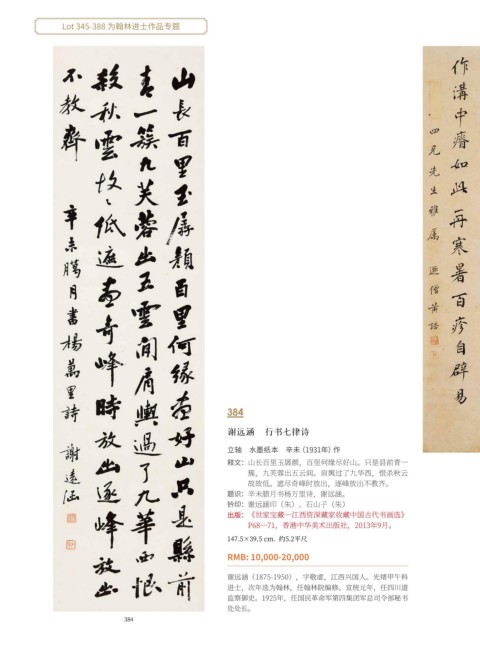 Lot 345-388 为翰林进士作品专题
山長百里玉孱顏百里何緣盡好山只是縣前
青一簇九芙蓉出五雲間肩輿過了九華西恨
殺秋雲故〻低遮盡奇峰時放出逐峰放出
不教齊
辛未臘月書楊萬里詩 謝遠涵
384
作溝中瘠如此再寒暑百沴自辟易
四兄先生雅属
384
谢远涵 行书七律诗
立轴 水墨纸本 辛未（1931年）作
释文：山长百里玉孱颜，百里何缘尽好山。只是县前青一
簇，九芙蓉出五云间。肩舆过了九华西，恨杀秋云
故故低。遮尽奇峰时放出，逐峰放出不教齐。
题识：辛未腊月书杨万里诗，谢远涵。
钤印：谢远涵印（朱）、石山子（朱）
出版：《世家宝藏—江西资深藏家收藏中国古代书画选》
P68—71，香港中华美术出版社，2013年9月。
147.5×39.5 cm. 约5.2平尺
RMB: 10,000-20,000
谢远涵（1875-1950），字敬虚，江西兴国人。光绪甲午科
进士，次年选为翰林，任翰林院编修。宣统元年，任四川道
监察御史。1925年，任国民革命军第四集团军总司令部秘书
处处长。